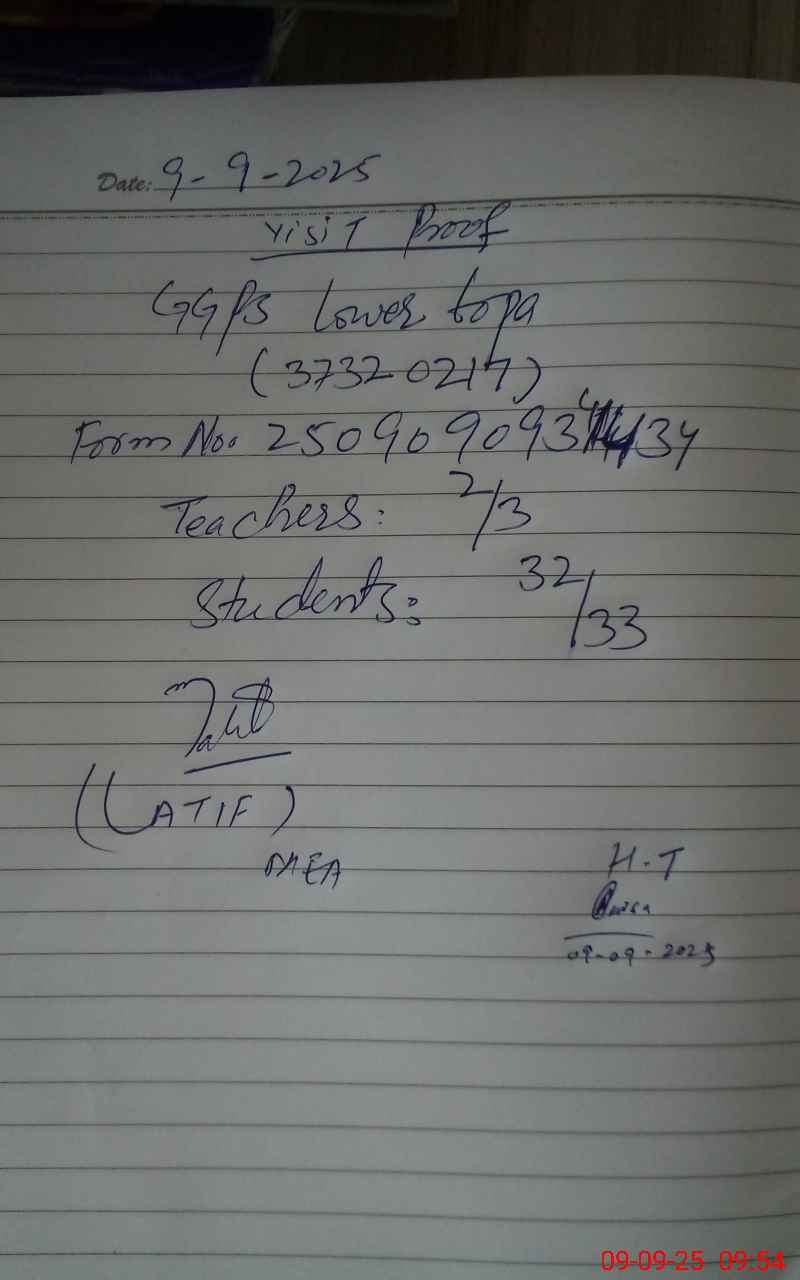 Date: 9-9-2025
Visit Proof
GGPS Lower topa
(37320217)
Form No. 250909093
Teachers: 2/3
Students: 32/33
(LATIF)
MEA
H.T
09-09-2025
09-09-25 09:54